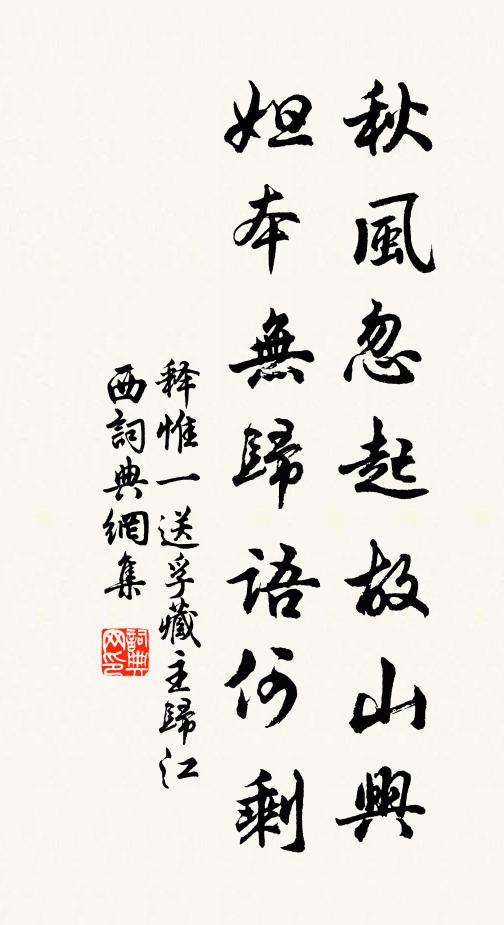 秋風忽起故山興
妲本無歸語何剩
释惟一送孚藏主歸江
西詞典網集
詞典网印